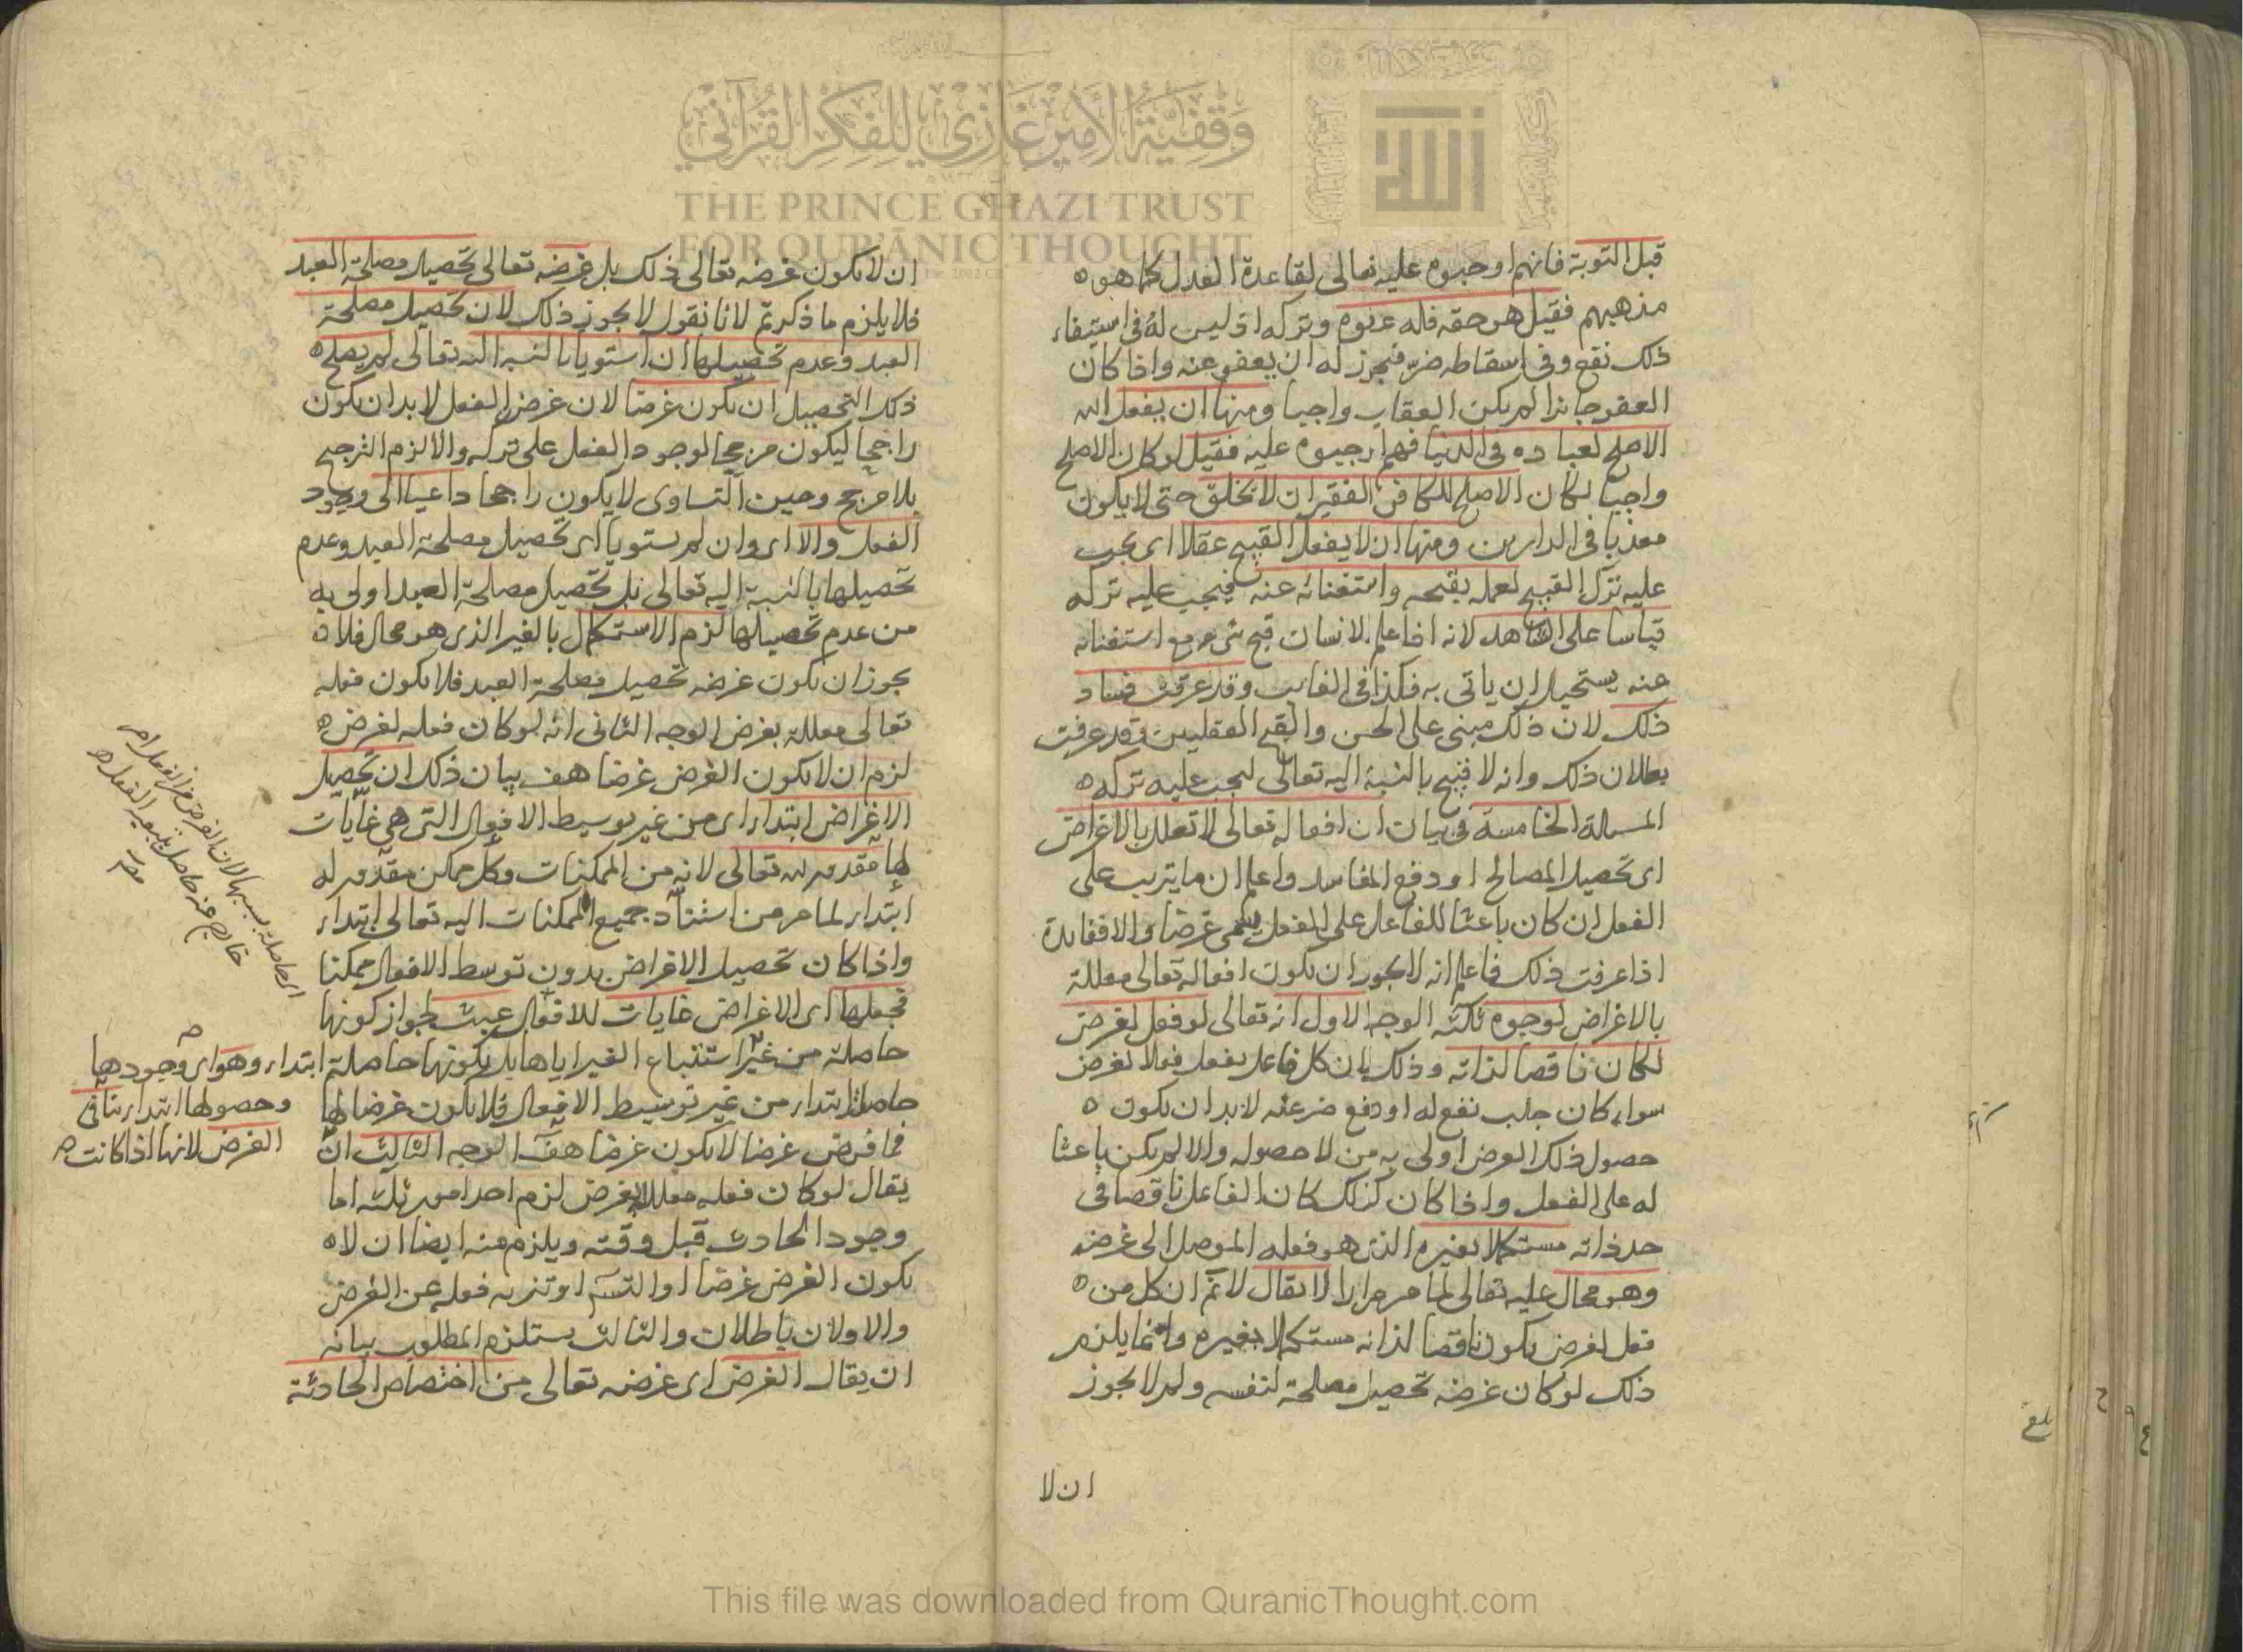 وقفية الأمير غازي للفكر القرآني
THE PRINCE GHAZI TRUST
FOR QUR'ĀNIC THOUGHT
الله
قبل التوبة فانهم اوجبوه عليه تعالى لقاعدة العدل كما هو
مذهبهم فقيل هو حقه فله عفوه وتركه اذ ليس له فى استيفاء
ذلك نفع وفى اسقاطه ضر فيجوز له ان يعفو عنه واذا كان
العفو جائزا لم يكن العقاب واجبا ومنها ان يفعل الله
الاصلح لعباده فى الدنيا فهم اوجبوه عليه فقيل لو كان الاصلح
واجبا لكان الاصلح للكافر الفقير ان لا يخلق حتى لا يكون
معذبا فى الدارين ومنها ان لا يفعل القبيح عقلا اى يجب
عليه ترك القبيح لعمله بقبحه واستغنائه عنه فيجب عليه تركه
قياسا على الشاهد لانه اذا علم الانسان قبح شىء مع استغنائه
عنه يستحيل ان ياتى به فكذا فى الغايب وقد عرفت فساد
ذلك لان ذلك مبنى على الحسن والقبح العقليين وقد عرفت
بطلان ذلك وانه لا قبيح بالنسبة اليه تعالى ليجب عليه تركه
المسالة الخامسة فى بيان ان افعاله تعالى لا تعلل بالاغراض
اى تحصيل المصالح او دفع المفاسد واعلم ان ما يترتب على
الفعل ان كان باعثا للفاعل على الفعل يسمى غرضا والا ففايدة
اذا عرفت ذلك فاعلم انه لا يجوز ان يكون افعاله تعالى معللة
بالاغراض لوجوه ثلثه الوجه الاول انه تعالى لو فعل لغرض
لكان ناقصا لذاته وذلك بان كل فاعل يفعل فعلا لغرض
سواء كان جلب نفع له او دفع ضر عنه لا بد ان يكون
حصول ذلك الغرض اولى به من لا حصوله والا لم يكن باعثا
له على الفعل واذا كان كذلك كان الفاعل ناقصا فى
حد ذاته مستكملا بغيره الذى هو فعله الموصل الى غرضه
وهو محال عليه تعالى لما مر مرارا لا يقال لا نم ان كل من
فعل لغرض يكون ناقصا لذاته مستكملا بغيره وانما يلزم
ذلك لو كان غرضه تحصيل مصلحة لنفسه ولم لا يجوز
ان لا
ان لا يكون غرضه تعالى ذلك بل غرضه تعالى تحصيل مصلحة العبد
فلا يلزم ما ذكرتم لانا نقول لا يجوز ذلك لان تحصيل مصلحة
العبد وعدم تحصيلها ان استويا بالنسبة الله تعالى لم يصلح
ذلك التحصيل ان يكون غرضا لان غرض الفعل لا بد ان يكون
راجحا ليكون مرجحا لوجود الفعل على تركه والا لزم الترجيح
بلا مرجح وحين التساوى لا يكون راجحا داعيا الى وجود
الفعل والا اى وان لم يستويا اى تحصيل مصلحة العبد وعدم
تحصيلها بالنسبة اليه تعالى بل تحصيل مصلحة العبد اولى به
من عدم تحصيلها لزم الاستكمال بالغير الذى هو محال فلا
يجوز ان يكون غرضه تحصيل مصلحة العبد فلا يكون فعله
تعالى معللة بغرض الوجه الثانى انه لو كان فعله لغرض
لزم ان لا يكون الغرض غرضا هف بيان ذلك ان تحصيل
الاغراض ابتداء اى من غير توسيط الافعال التى هى غايات
لها مقدور لله تعالى لانه من الممكنات وكل ممكن مقدور له
ابتداء لما مر من استناد جميع الممكنات اليه تعالى ابتداء
واذا كان تحصيل الاغراض بدون توسط الافعال ممكنا
فجعلها اى الاغراض غايات للافعال عبث لجواز كونها
حاصلة من غير استتباع الغير اياها بل يكونها حاصلة ابتداء وهو اى وجودها
حاصلة ابتداء من غير توسيط الافعال فلا يكون غرضا لها
فما فرض غرضا لا يكون غرضا هف الوجه الثالث ان
يقال لو كان فعله معللا بغرض لزم احد امور ثلثه اما
وجود الحادث قبل وقته ويلزم منه ايضا ان لا
يكون الغرض غرضا او التسلسل او تنزيه فعله عن الغرض
والاولان باطلان والثالث يستلزم المطلوب بيانه
ان يقال الغرض اى غرضه تعالى من اختصاص الحادثة
وحصولها ابتداء ينافى
الغرض لانها اذا كانت
اى حاصلة بسببها لان الغرض من الفعل امر
خارج عنه حاصل بتبعية الفعل
بلغ
This file was downloaded from QuranicThought.com